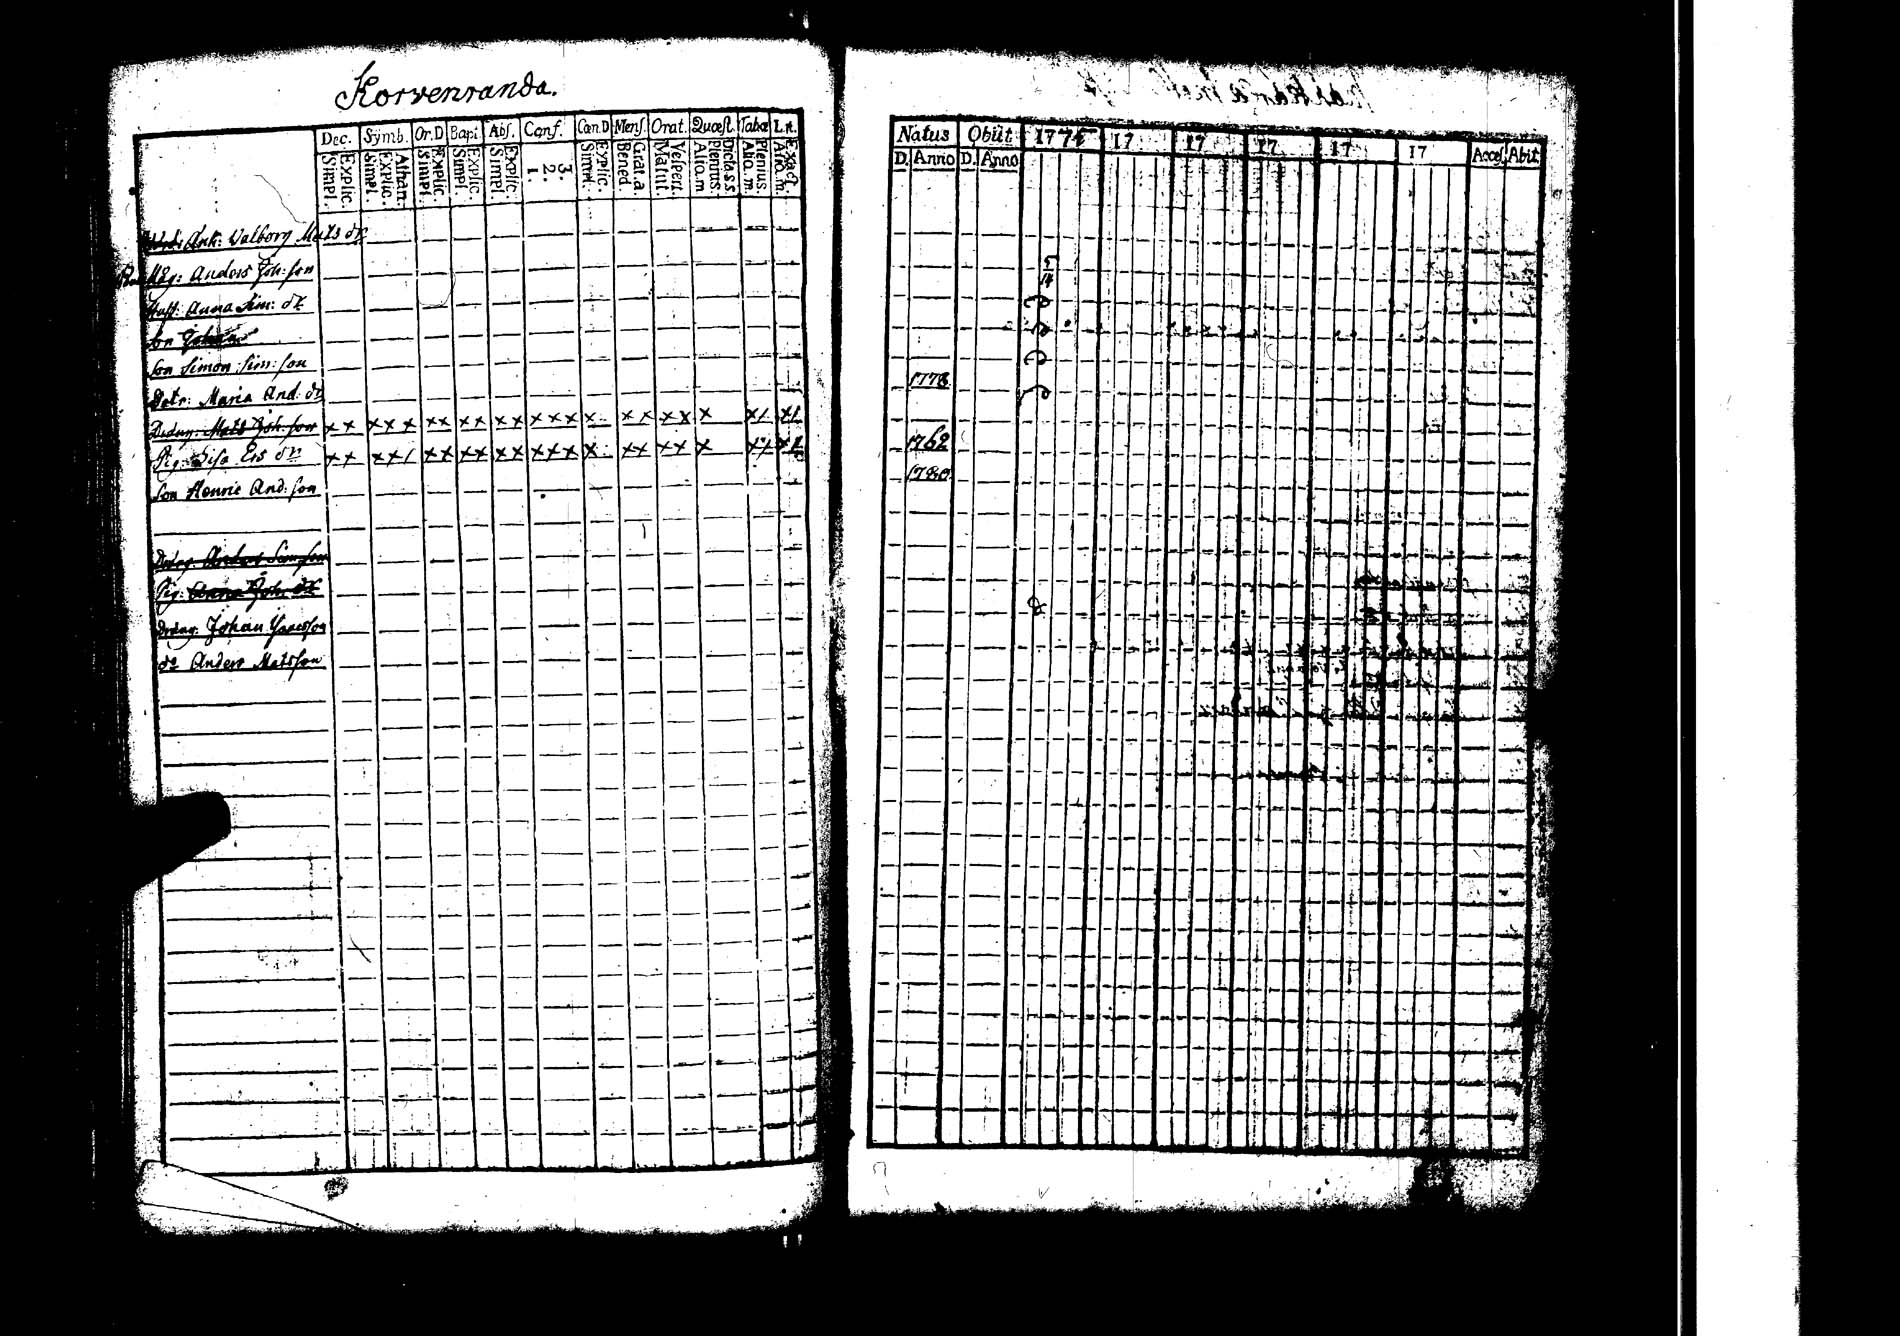 Korvenranda.
Dec. Symb. Or.D Bapt. Abs. Conf. Can.D Mens. Orat. Quæst. Tabæ L.n.
Explic. Simpl. Athan. Explic. Simpl. Explic. Simpl. Explic. Simpl. Explic. Simpl. 3. 2. 1. Explic. Simpl. Grat. a Bened. Vespert. Matut. Dicta s.s. Plenius. Alio. m Plenius. Alio. m Exact. Alio. m.
Ank: Valborg Mats dr
Anders Joh: son
Hust: Anna Sim: dr
Son
Son Simon Sim: son
Dotr: Maria And: dr
Dräng: Mats Joh: son x x x x x x x x x x x x x x x x x x x x x
Pig: Lisa Ers dr x x x x x x x x x x x x x x x x x x x
Son Henric And: son
Dräng: Anders Simson
Pig: Anna Joh: dr
Dräng: Johan
do Anders Matsson
Natus Obiit 1775 17 17 17 17 17 Acces. Abit
D. Anno D. Anno
5
14
1778
1762
1780